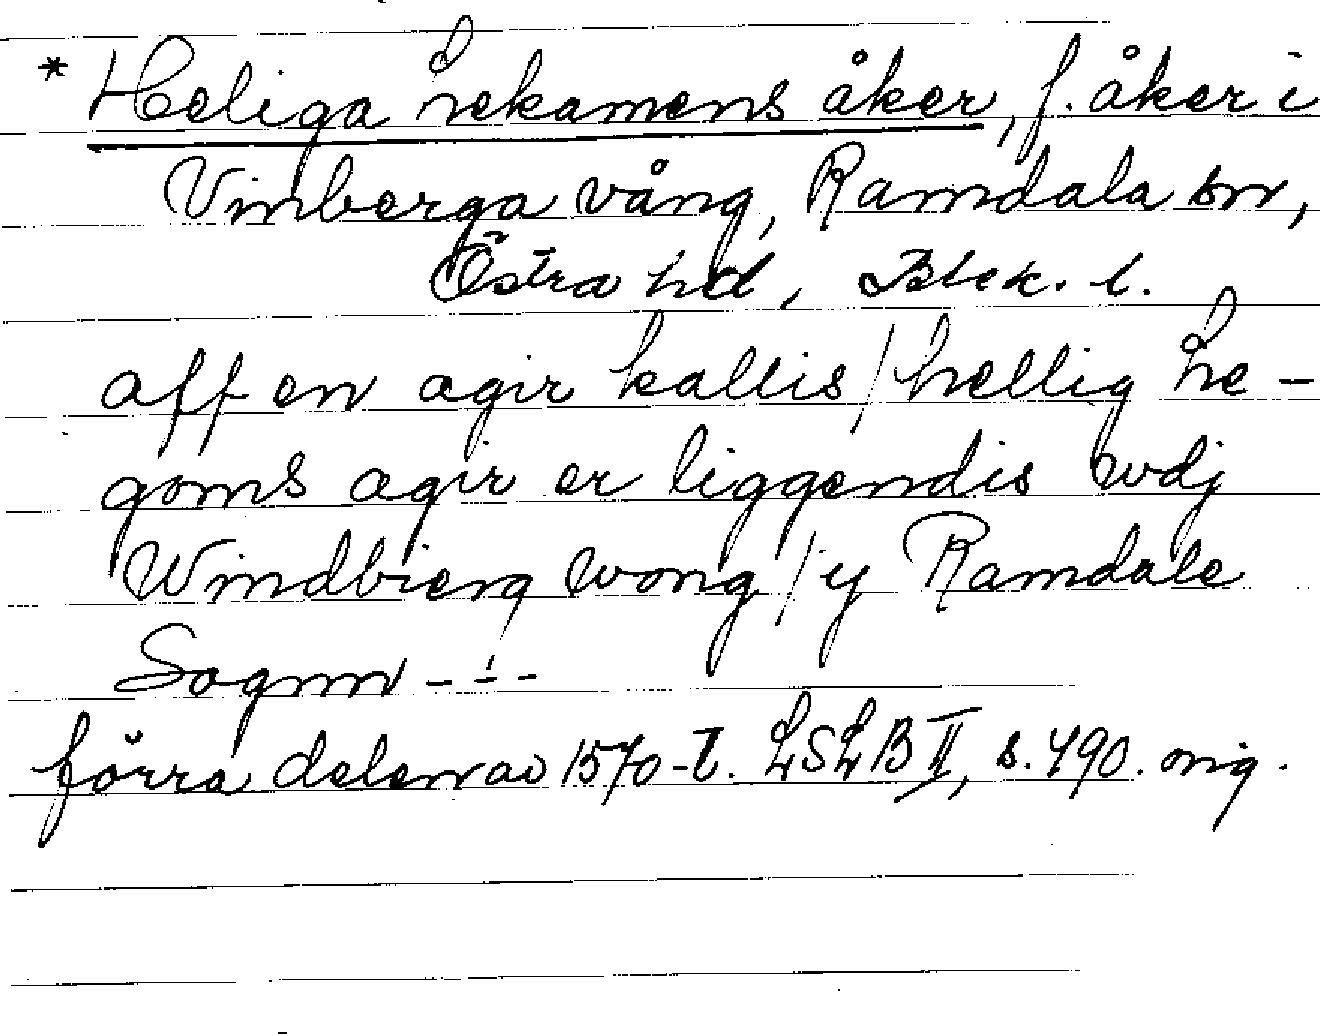 * Heliga lekamens åker, f. åker i
Vinberga vång, Ramdala sn,
Östra hd, Blek. l.
aff en agir kallis / hellig le-
goms agir er liggendis wdj
Windbierg wong / y Ramdale
Sognn - - -
förra delen av 1570-t. LSLB II, s. 490. orig.